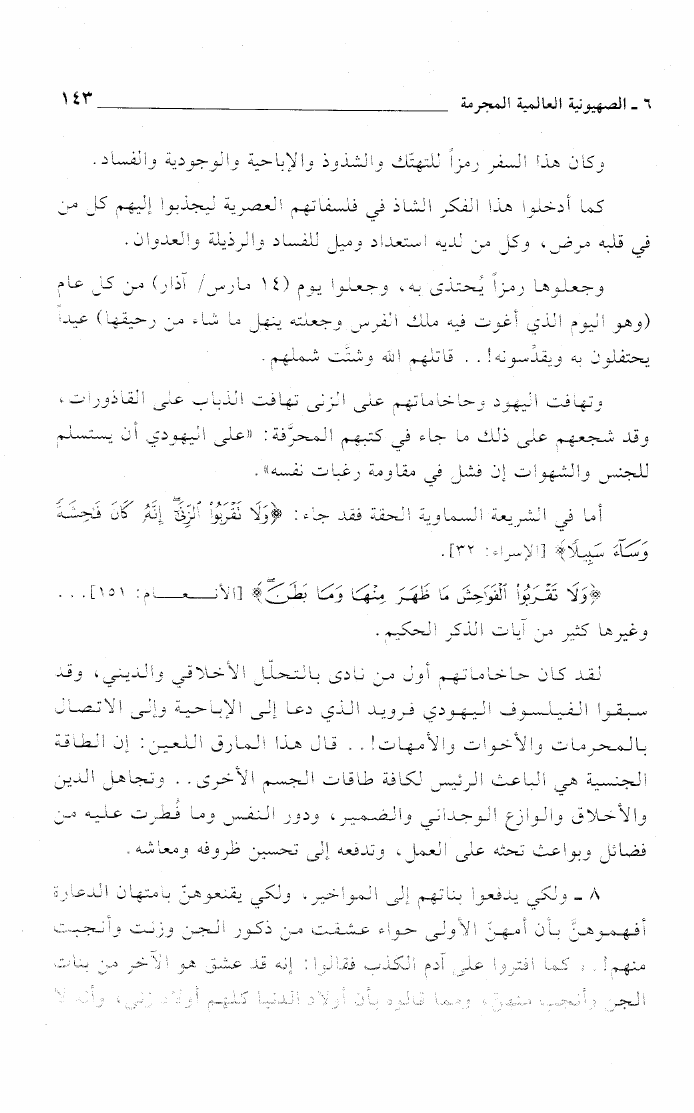 ٦ ـ الصهيونية العالمية المجرمة ١٤٣
وكان هذا السفر رمزاً للتهتّك والشذوذ والإباحية والوجودية والفساد.
كما أدخلوا هذا الفكر الشاذ في فلسفاتهم العصرية ليجذبوا إليهم كل من
في قلبه مرض، وكل من لديه استعداد وميل للفساد والرذيلة والعدوان.
وجعلوها رمزاً يُحتذى به، وجعلوا يوم (١٤ مارس/ آذار) من كل عام
(وهو اليوم الذي أغوت فيه ملك الفرس وجعلته ينهل ما شاء من رحيقها) عيداً
يحتفلون به ويقدِّسونه!.. قاتلهم الله وشتَّت شملهم.
وتهافت اليهود وحاخاماتهم على الزنى تهافت الذباب على القاذورات،
وقد شجعهم على ذلك ما جاء في كتبهم المحرَّفة: «على اليهودي أن يستسلم
للجنس والشهوات إن فشل في مقاومة رغبات نفسه».
أما في الشريعة السماوية الحقة فقد جاء: ﴿وَلَا نَقْرَبُوا۟ ٱلزِّنَىٰٓ إِنَّهُۥ كَانَ فَـٰحِشَةً
وَسَآءَ سَبِيلًا﴾ [الإسراء: ٣٢].
﴿وَلَا تَقْرَبُوا۟ ٱلْفَوَٰحِشَ مَا ظَهَرَ مِنْهَا وَمَا بَطَنَ﴾ [الأنـعـام: ١٥١]...
وغيرها كثير من آيات الذكر الحكيم.
لقد كان حاخاماتهم أول من نادى بالتحلّل الأخلاقي والديني، وقد
سبقوا الفيلسوف اليهودي فرويد الذي دعا إلى الإباحية وإلى الاتصال
بالمحرمات والأخوات والأمهات!.. قال هذا المارق اللعين: إن الطاقة
الجنسية هي الباعث الرئيس لكافة طاقات الجسم الأخرى.. وتجاهل الدين
والأخلاق والوازع الوجداني والضمير، ودور النفس وما فُطرت عليه من
فضائل وبواعث تحثه على العمل، وتدفعه إلى تحسين ظروفه ومعاشه.
٨ ـ ولكي يدفعوا بناتهم إلى المواخير، ولكي يقنعوهنّ بامتهان الدعارة
أفهموهنَّ بأن أمهنّ الأولى حواء عشقت من ذكور الجن وزنت وأنجبت
منهم!.. كما افتروا على آدم الكذب فقالوا: إنه قد عشق هو الآخر من بنات
الجن وأنجب منهنّ، ومما قالوه بأن أولاد الدنيا كلهم أولاد زنى، وأنه لا